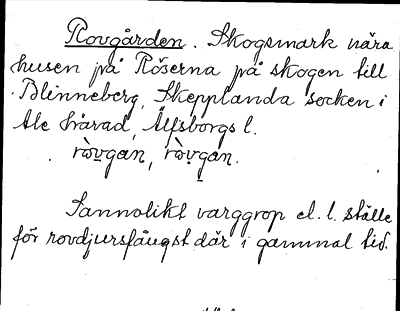 Rovgården. Skogsmark nära
husen på Röserna på skogen till
Blinneberg, Skepplanda socken i
Ale härad, Älfsborgs l.
ròv̬gan, ròv̬gan.
Sannolikt varggrop el. l. ställe
för rovdjursfångst där i gammal tid.